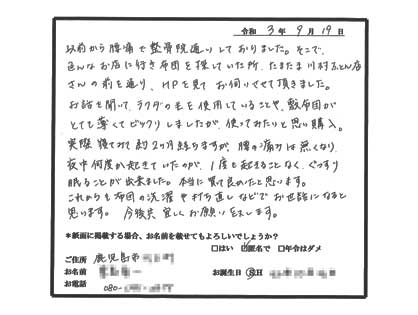 令和 3年 9月 19日
以前から腰痛で整骨院通いしておりました。そこで、
色んなお店に行き布団を探していた所、たまたま川村ふとん店
さんの前を通り、HPを見てお伺いさせて頂きました。
お話を聞いて、ラクダの毛を使用していることや、敷布団が
とても薄くてビックリしましたが、使ってみたいと思い購入。
実際寝てみて約2ヶ月経ちますが、腰の痛みは無くなり、
夜中何度か起きていたのが、1度も起きることなく、ぐっすり
眠ることが出来ました。本当に買って良かったと思います。
これからも布団の洗濯や打ち直しなどでお世話になると
思います。今後共宜しくお願い致します。
*紙面に掲載する場合、お名前を載せてもよろしいでしょうか?
□はい ☑匿名で □年令はダメ
ご住所 鹿児島市
お名前 お誕生日
お電話 080-